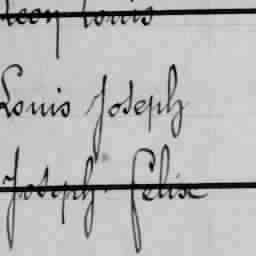 Leon Louis
Louis Joseph
Joseph Félix